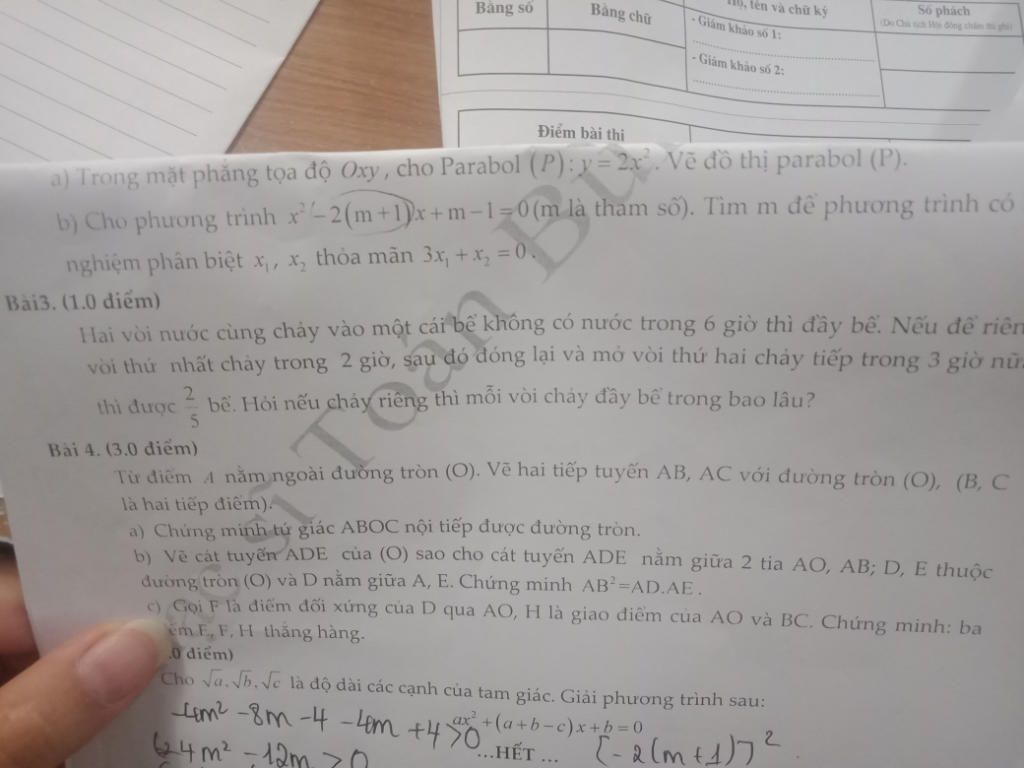 Bằng số
Bằng chữ
tên và chữ ký
- Giám khảo số 1:
- Giám khảo số 2:
Số phách
(Do Chủ tịch Hội đồng chấm thi ghi)
Điểm bài thi
a) Trong mặt phẳng tọa độ Oxy, cho Parabol (P): y = 2x². Vẽ đồ thị parabol (P).
b) Cho phương trình x² - 2(m+1)x + m - 1 = 0 (m là tham số). Tìm m để phương trình có
nghiệm phân biệt x₁, x₂ thỏa mãn 3x₁ + x₂ = 0.
Bài3. (1.0 điểm)
Hai vòi nước cùng chảy vào một cái bể không có nước trong 6 giờ thì đầy bể. Nếu để
vòi thứ nhất chảy trong 2 giờ, sau đó đóng lại và mở vòi thứ hai chảy tiếp trong 3 giờ
thì được 2/5 bể. Hỏi nếu chảy riêng thì mỗi vòi chảy đầy bể trong bao lâu?
Bài 4. (3.0 điểm)
Từ điểm A nằm ngoài đường tròn (O). Vẽ hai tiếp tuyến AB, AC với đường tròn (O), (B, C
là hai tiếp điểm).
a) Chứng minh tứ giác ABOC nội tiếp được đường tròn.
b) Vẽ cát tuyến ADE của (O) sao cho cát tuyến ADE nằm giữa 2 tia AO, AB; D, E thuộc
đường tròn (O) và D nằm giữa A, E. Chứng minh AB²=AD.AE.
c) Gọi F là điểm đối xứng của D qua AO, H là giao điểm của AO và BC. Chứng minh: ba
E, F, H thẳng hàng.
điểm)
Cho √a, √b, √c là độ dài các cạnh của tam giác. Giải phương trình sau:
ax² + (a+b-c)x + b = 0
-4m² - 8m - 4 - 4m + 4 > 0
...HẾT ...
[-2(m+1)]²
4m² - 12m > 0
sĩ Toán